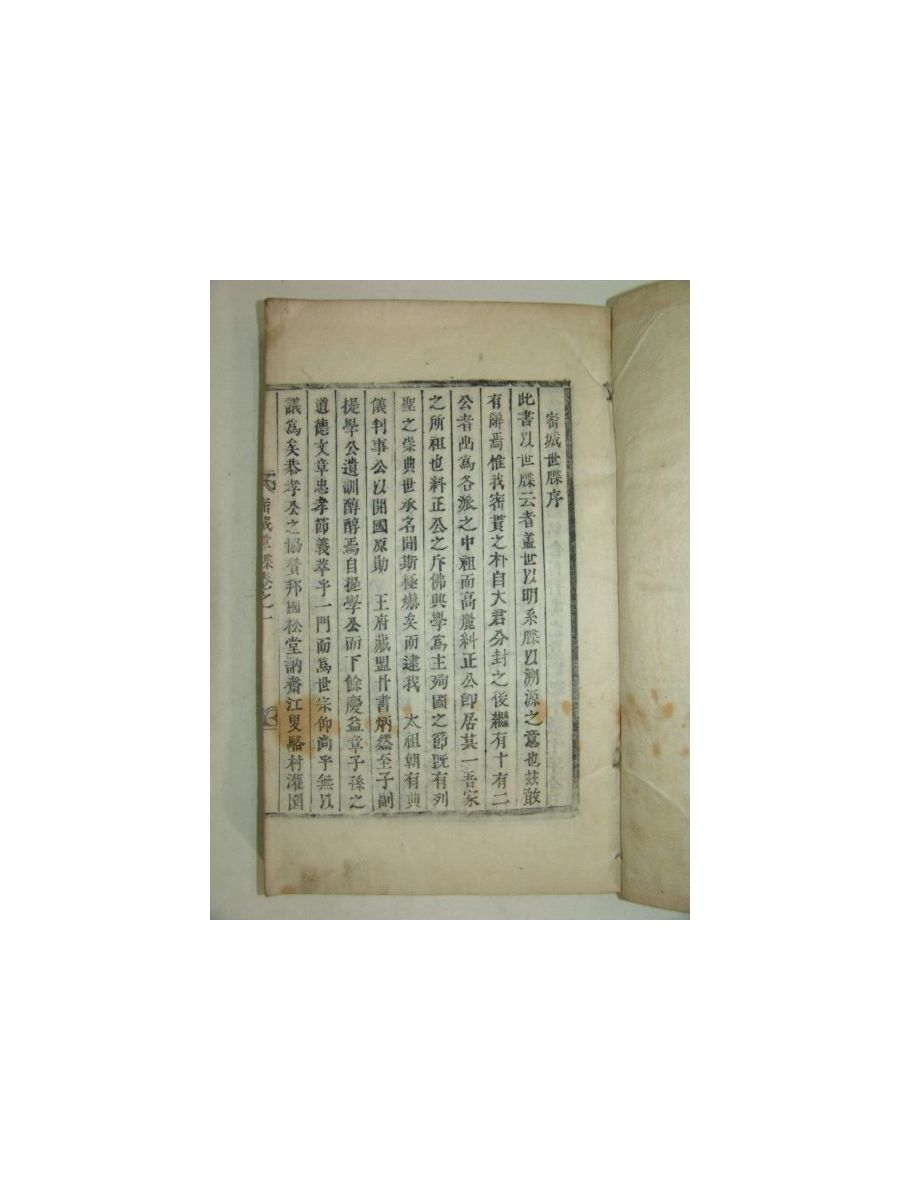 密城世牒序
此書以世牒云者盖世以明系牒以溯源之意也玆敢
有辭焉惟我密貫之朴自大君分封之後繼有十有二
公者出爲各派之中祖而高麗糾正公卽居其一吾家
之所祖也糾正公之斥佛興學爲主殉國之節旣有列
聖之崇典世承名聞斯極爀矣而逮我 太祖朝有典
儀判事公以開國原勛 王府藏盟丹書炳然至子副
提學公遺訓醇醇焉自提學公而下餘慶益章子孫之
道德文章忠孝節義萃乎一門而爲世宗仰尚乎無以
議爲矣恭孝公之協贊邦國松堂訥齋江叟駱村灌園
密城世牒卷之一